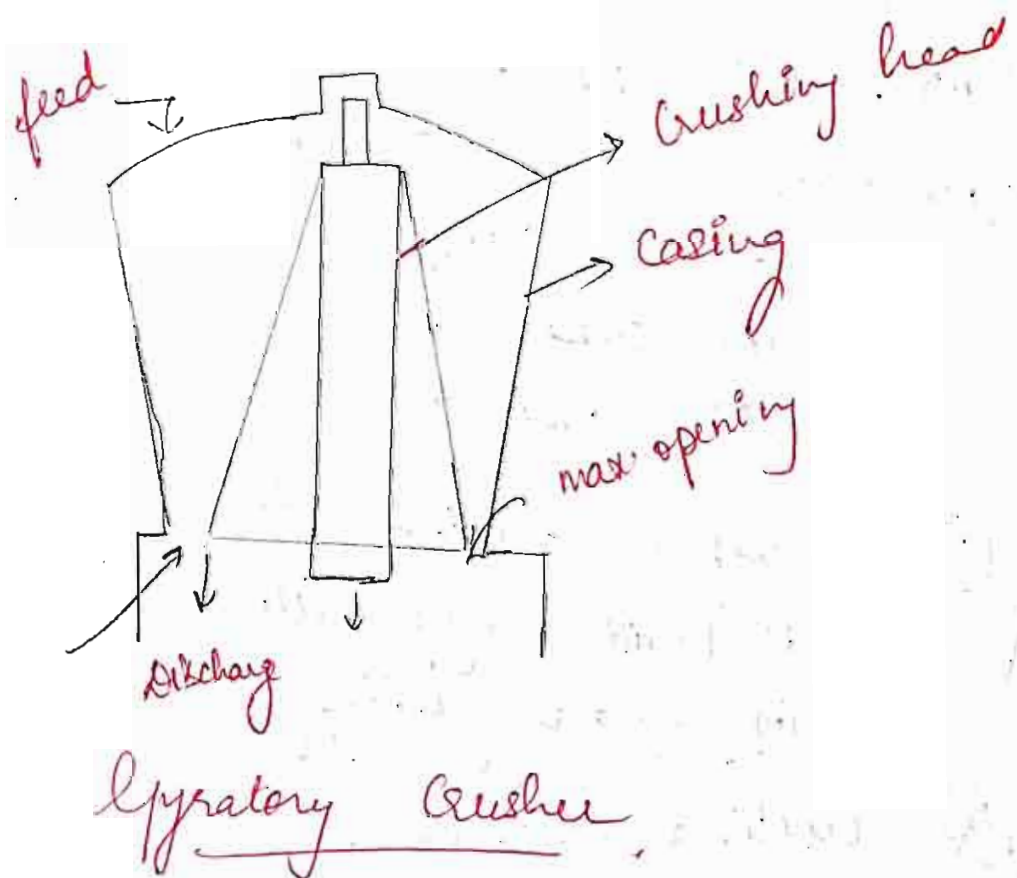 feed
Crushing head
Casing
max. opening
Discharg
Gyratory Crusher